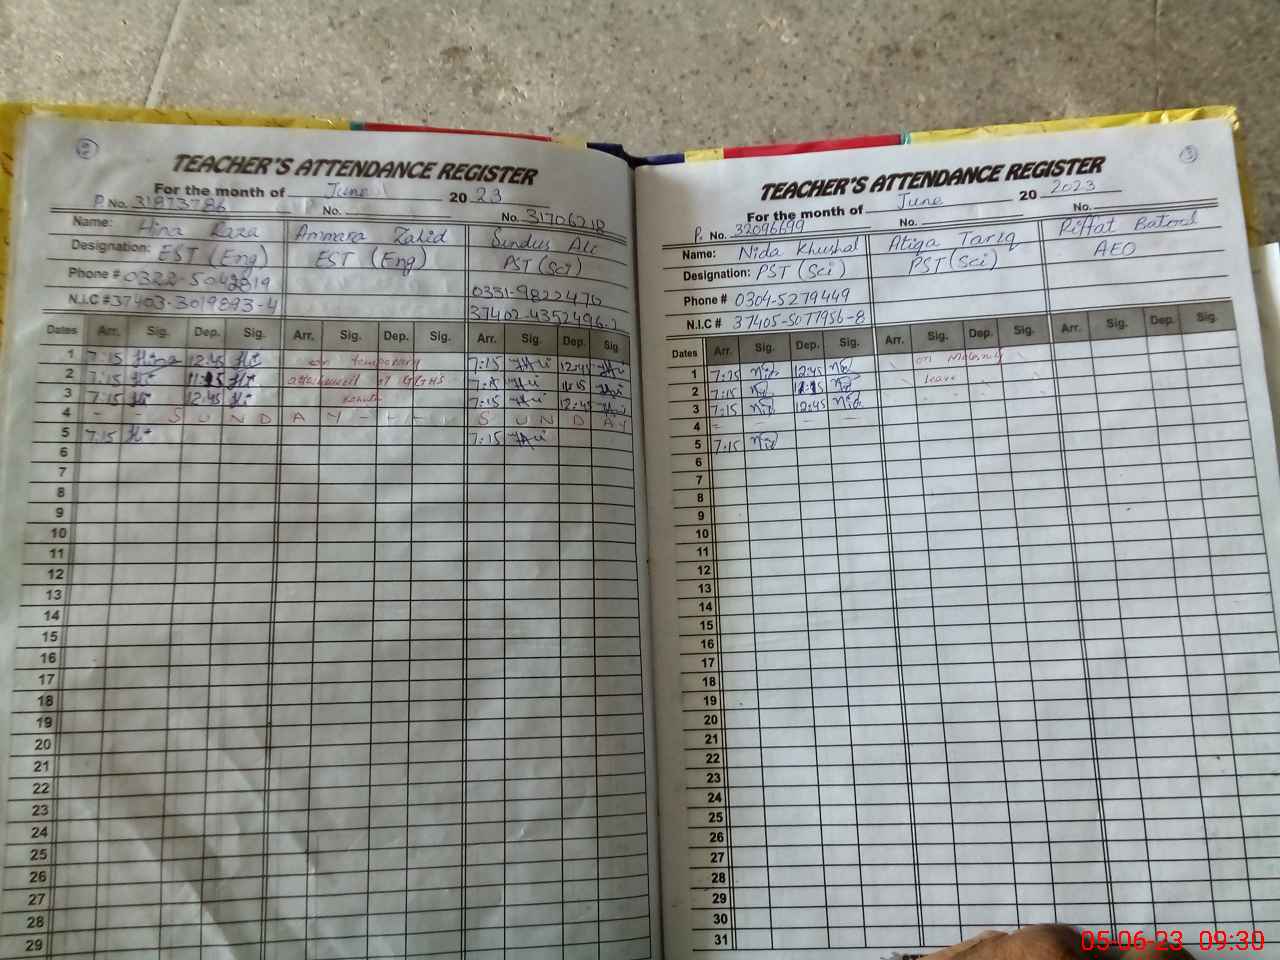 2
TEACHER'S ATTENDANCE REGISTER
For the month of June 20 23
P. No. 31873786 No. No. 31706218
Name: Hina Raza Ammara Zahid Sundus Ali
Designation: EST (Eng) EST (Eng) PST (Sci)
Phone # 0322-5042819 0331-9822470
N.I.C # 37403-3019893-4 37402-4352496-2
Dates Arr. Sig. Dep. Sig. Arr. Sig. Dep. Sig. Arr. Sig. Dep. Sig.
1 7:15 Hina 12:45 on temporary 7:15 12:45
2 7:15 11:15 attachment at GGHS 7:15 11:15
3 7:15 12:45 7:15 12:45
4 - S U N D A Y - - - S U N D A Y
5 7:15 7:15
6
7
8
9
10
11
12
13
14
15
16
17
18
19
20
21
22
23
24
25
26
27
28
29
3
TEACHER'S ATTENDANCE REGISTER
For the month of June 20 2023
P. No. 32096699 No. No.
Name: Nida Khushal Atiqa Tariq Riffat Batool
Designation: PST (Sci) PST (Sci) AEO
Phone # 0304-5279449
N.I.C # 37405-5077956-8
Dates Arr. Sig. Dep. Sig. Arr. Sig. Dep. Sig. Arr. Sig. Dep. Sig.
1 7:15 Nid 12:45 Nid on Maternity
2 7:15 Nid 11:15 Nid leave
3 7:15 Nid 12:45 Nid
4 - -
5 7:15 Nid
6
7
8
9
10
11
12
13
14
15
16
17
18
19
20
21
22
23
24
25
26
27
28
29
30
31
05-06-23 09:30